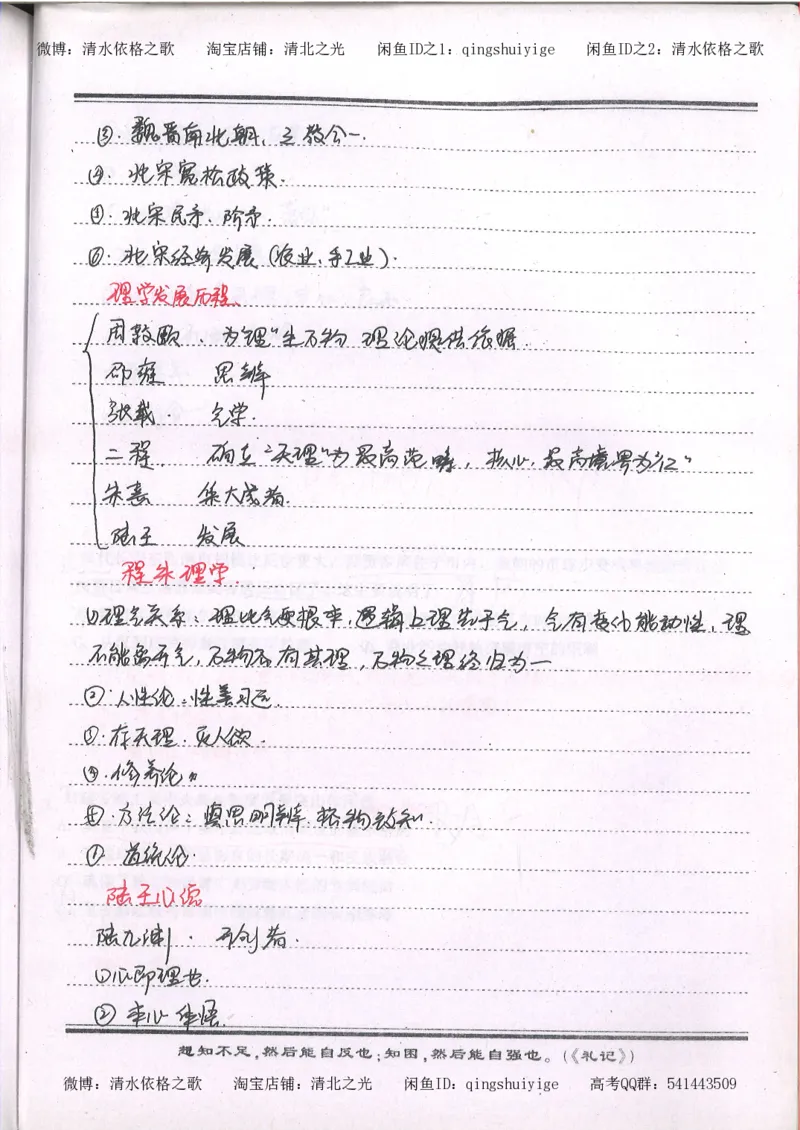 微博：清水依格之歌 淘宝店铺：清北之光 闲鱼ID之1：qingshuiyige 闲鱼ID之2：清水依格之歌
③.魏晋南北朝，三教合一.
④.北宋宽松政策.
⑤.北宋民矛.阶矛.
⑥.北宋经济发展(农业、手工业).
理学发展历程.
周敦颐.为"理"生万物 理论提供依据.
邵雍 思辨
张载. 气学.
二程. 确立"天理"为最高范畴，核心.最高境界为"仁"
朱熹 集大成者.
陆王 发展
程朱理学.
①理气关系：理比气更根本，逻辑上理先于气，气有变化能动性，理
不能离开气，万物各有其理，万物之理终归为一
②.人性论：性善习远.
③.存天理.灭人欲.
④.修养论
方法论：慎思明辨.格物致知.
道统论.
陆王心
陆九渊. 开创者.
①心即理也.
②本心 体悟.
然后能自反也；知困，然后能自强也。(《礼记》)
微博：清水依格之歌 淘宝店铺：清北之光 闲鱼ID：qingshuiyige 高考QQ群：541443509